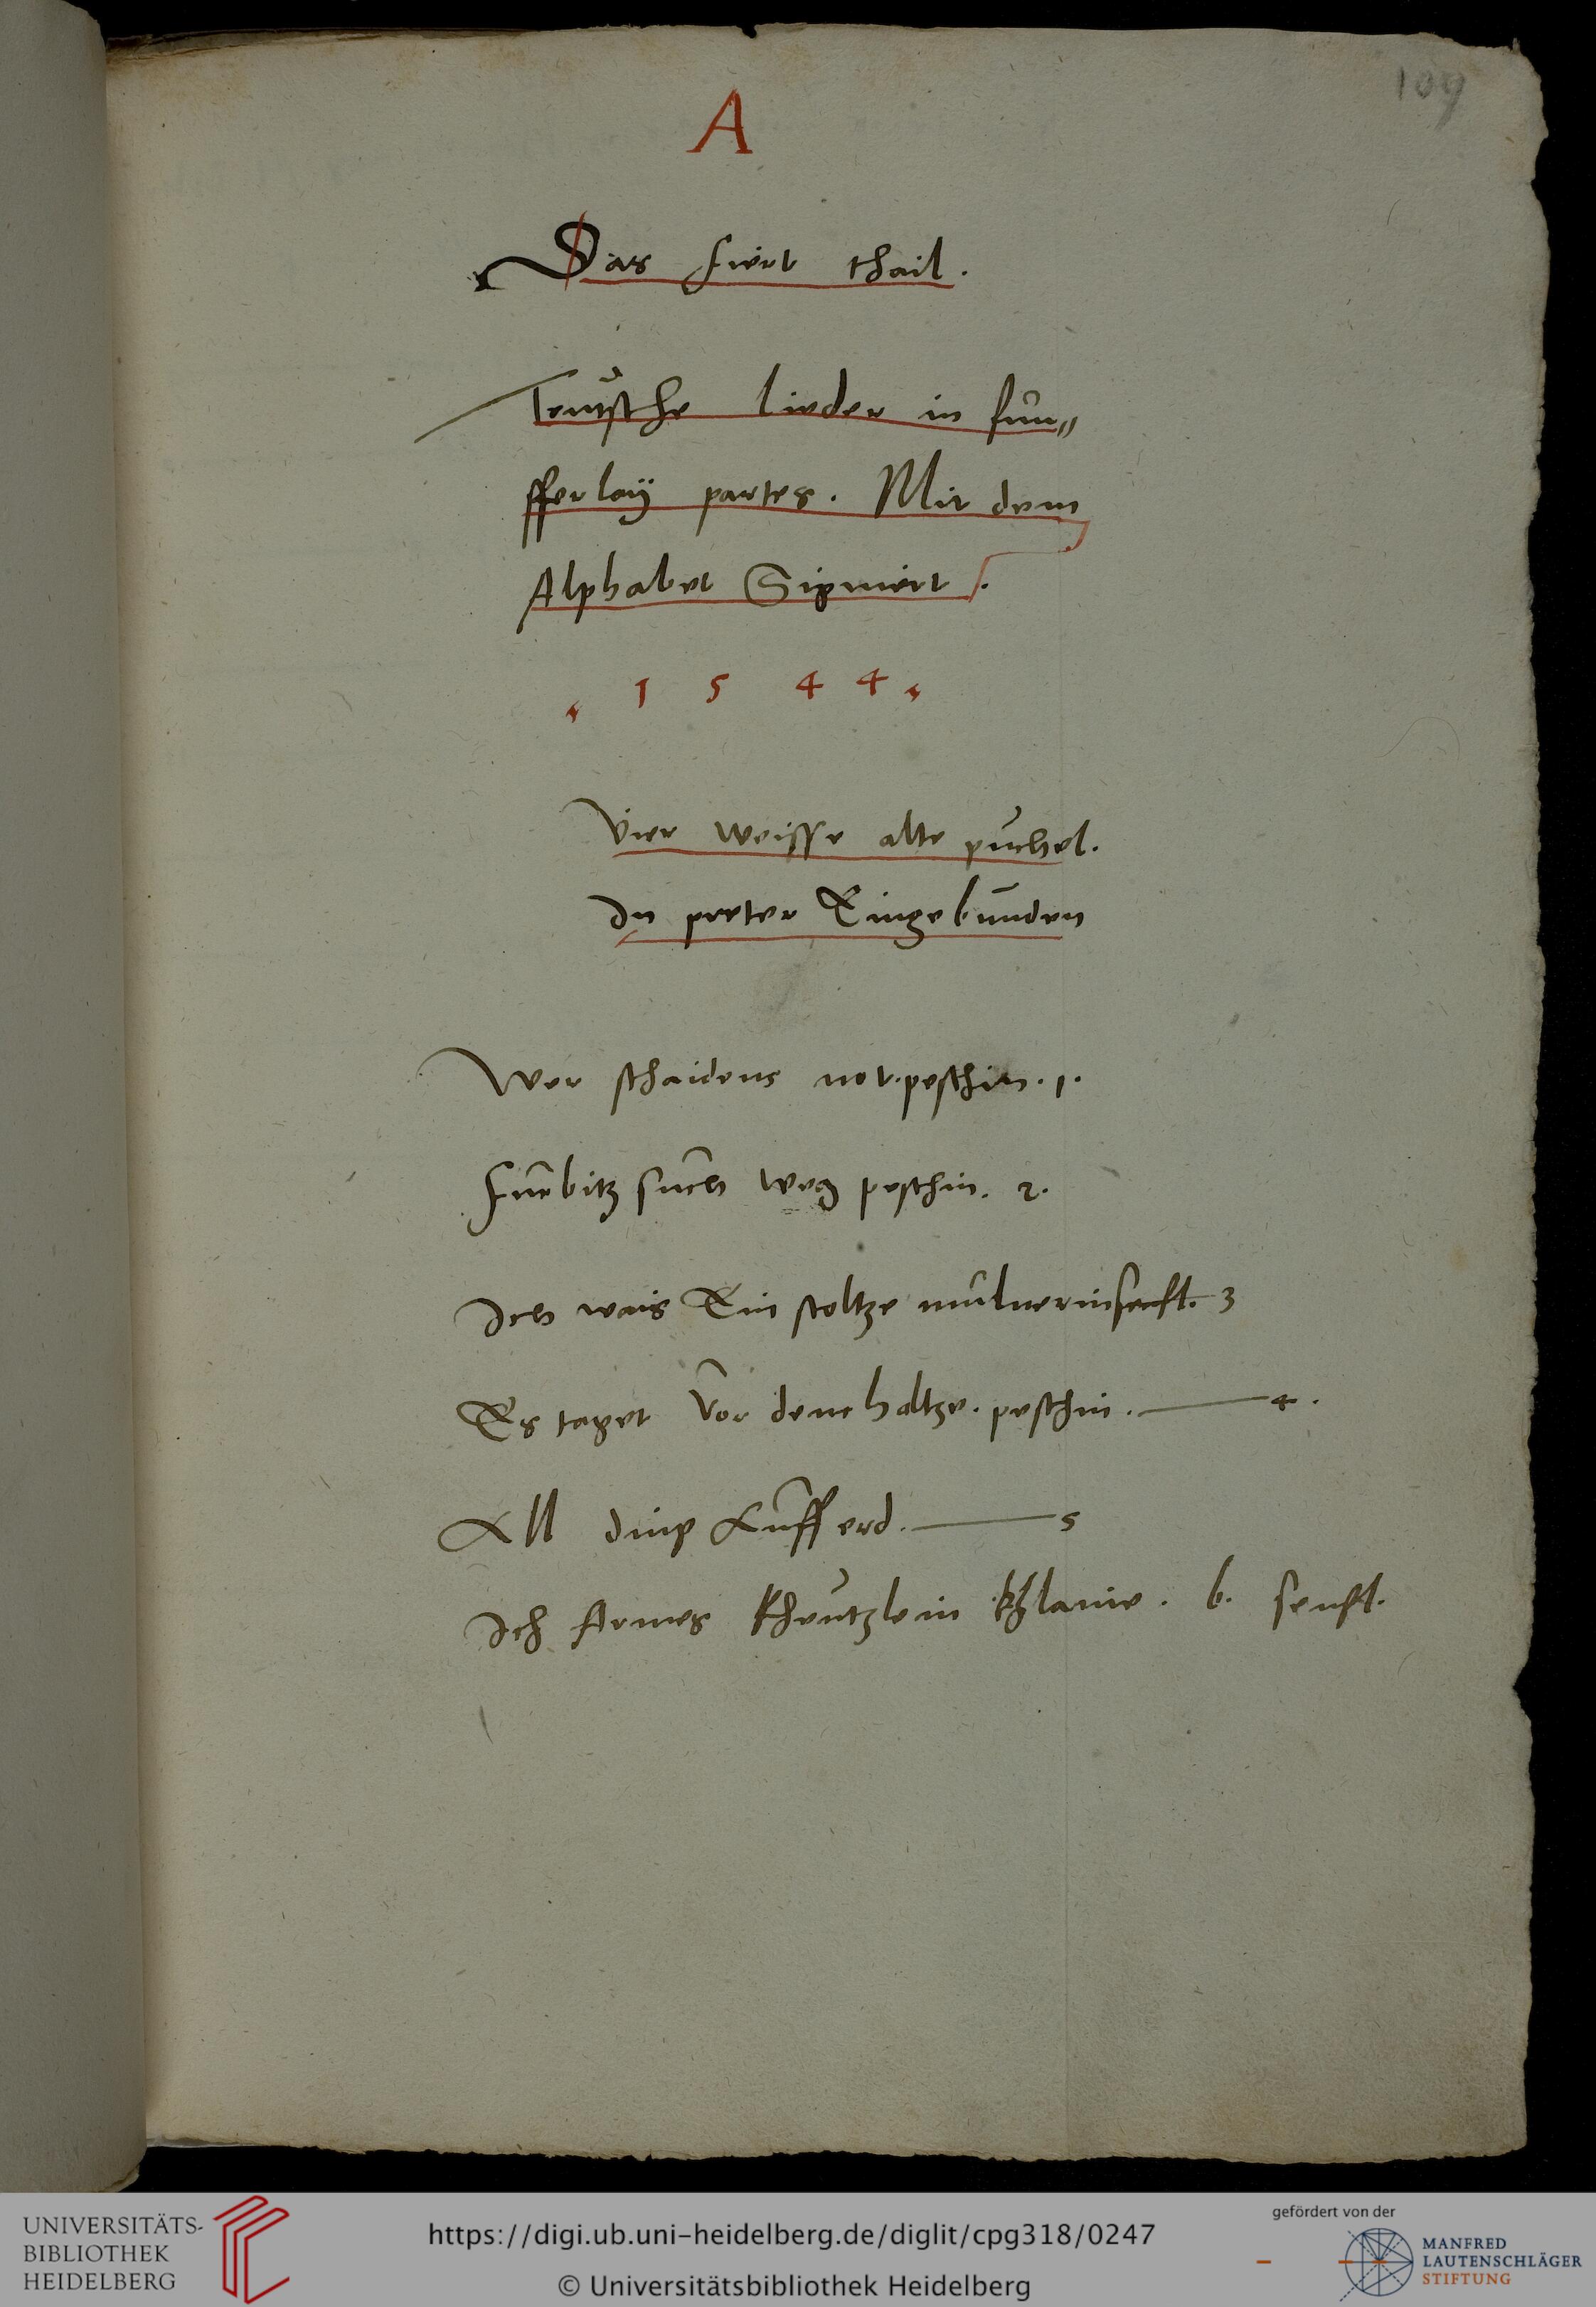 109
A
Das fiert thail.
Teutsche lieder in fun„
fferlay partes. Mit dem
Alphabet Signiert.
1 5 4 4
Vier weisse alte puchel.
In preter Eingebunden
Wer schaidens not. peschin. 1.
Furbitz such weg peschin. 2.
Ich wais Ein stoltze mulnerin senfl. 3
Es taget vor dem holtze. peschin. 4.
All ding Aufferd. 5
Ich Armes kheutzlein khlaine. 6. senfl.
UNIVERSITÄTS-
BIBLIOTHEK
HEIDELBERG
https://digi.ub.uni-heidelberg.de/diglit/cpg318/0247
© Universitätsbibliothek Heidelberg
gefördert von der
MANFRED
LAUTENSCHLÄGER
STIFTUNG